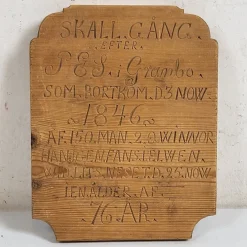 SKALL.GÅNG.
EFTER.
P.E.S. i Grambo.
SOM.BORTKOM.D.3 NOW.
1846.
AF.150.MAN.2.9 WINNOR
HAN.IGENFANS.I.ELWEN.
D.25.NOW
I.EN.ÅLDER.AF.
76.ÅR.